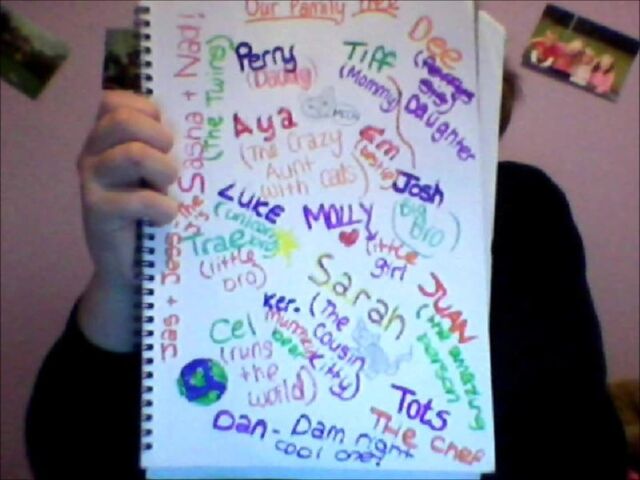 Our Family Tree
Sasha + Nad!
(The Twins)
Perry
(Daddy)
Tiff
(Mommy)
Dee
Daughter
Moo
Aya
(The Crazy
Aunt
with cats)
Em
Josh
(big
bro)
Luke
Molly
little
girl
Trae
(little
bro)
Jas + Jess
Sarah
(The
cousin
kitty)
Ker.
Juan
(the amazing
person)
Cel
(runs
the
world)
Tots
The chef
Dan - Dam right
cool one!